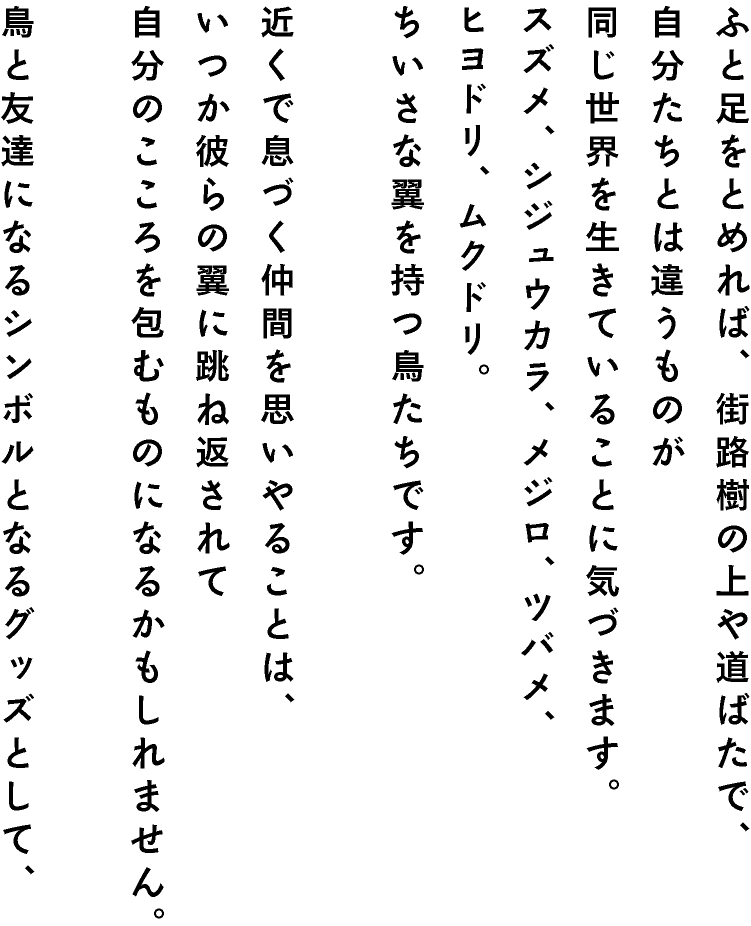 ふと足をとめれば、街路樹の上や道ばたで、
自分たちとは違うものが
同じ世界を生きていることに気づきます。
スズメ、シジュウカラ、メジロ、ツバメ、
ヒヨドリ、ムクドリ。
ちいさな翼を持つ鳥たちです。
近くで息づく仲間を思いやることは、
いつか彼らの翼に跳ね返されて
自分のこころを包むものになるかもしれません。
鳥と友達になるシンボルとなるグッズとして、